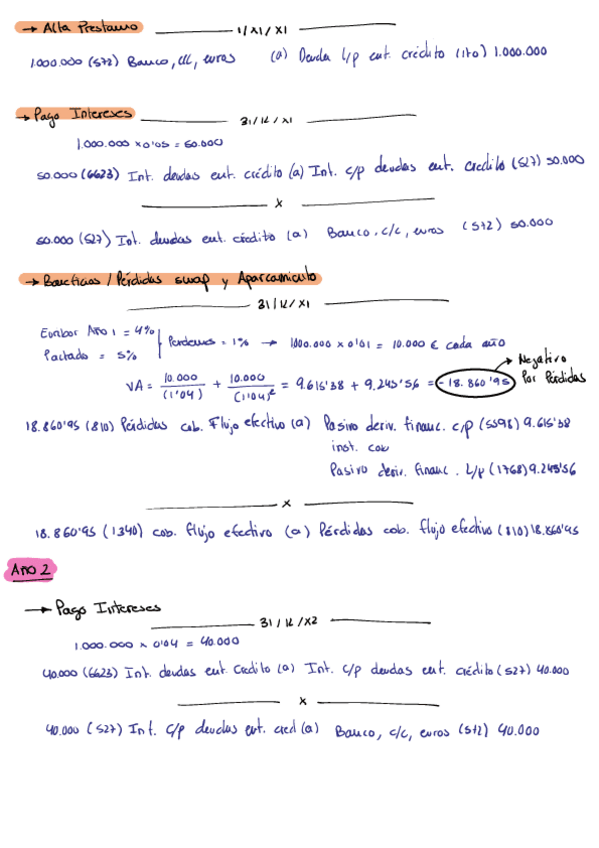 → Alta Prestamo
1/X1/X1
1.000.000 (572) Banco, c/c, euros (a) Deuda l/p ent. crédito (170) 1.000.000
→ Pago Intereses
31/12/X1
1.000.000 x 0'05 = 50.000
50.000 (6623) Int. deudas ent. crédito (a) Int. c/p deudas ent. credito (527) 50.000
x
50.000 (527) Int. deudas ent. crédito (a) Banco, c/c, euros (572) 50.000
→ Beneficios / Pérdidas swap y Aparcamiento
31/12/X1
Euribor Año 1 = 4%
Pactado = 5%
Perdemos = 1% → 1000.000 x 0'01 = 10.000 € cada año
→ Negativo
Por Pérdidas
VA = 10.000/(1'04) + 10.000/(1'04)² = 9.615'38 + 9.245'56 = -18.860'95
18.860'95 (810) Pérdidas cob. Flujo efectivo (a) Pasivo deriv. financ. c/p (5598) 9.615'38
inst. cob
Pasivo deriv. financ. L/p (1768) 9.245'56
x
18.860'95 (1340) cob. flujo efectivo (a) Pérdidas cob. flujo efectivo (810) 18.860'95
Año 2
→ Pago Intereses
31/12/X2
1.000.000 x 0'04 = 40.000
40.000 (6623) Int. deudas ent. Credito (a) Int. c/p deudas ent. crédito (527) 40.000
x
40.000 (527) Int. c/p deudas ent. cred (a) Banco, c/c, euros (572) 40.000